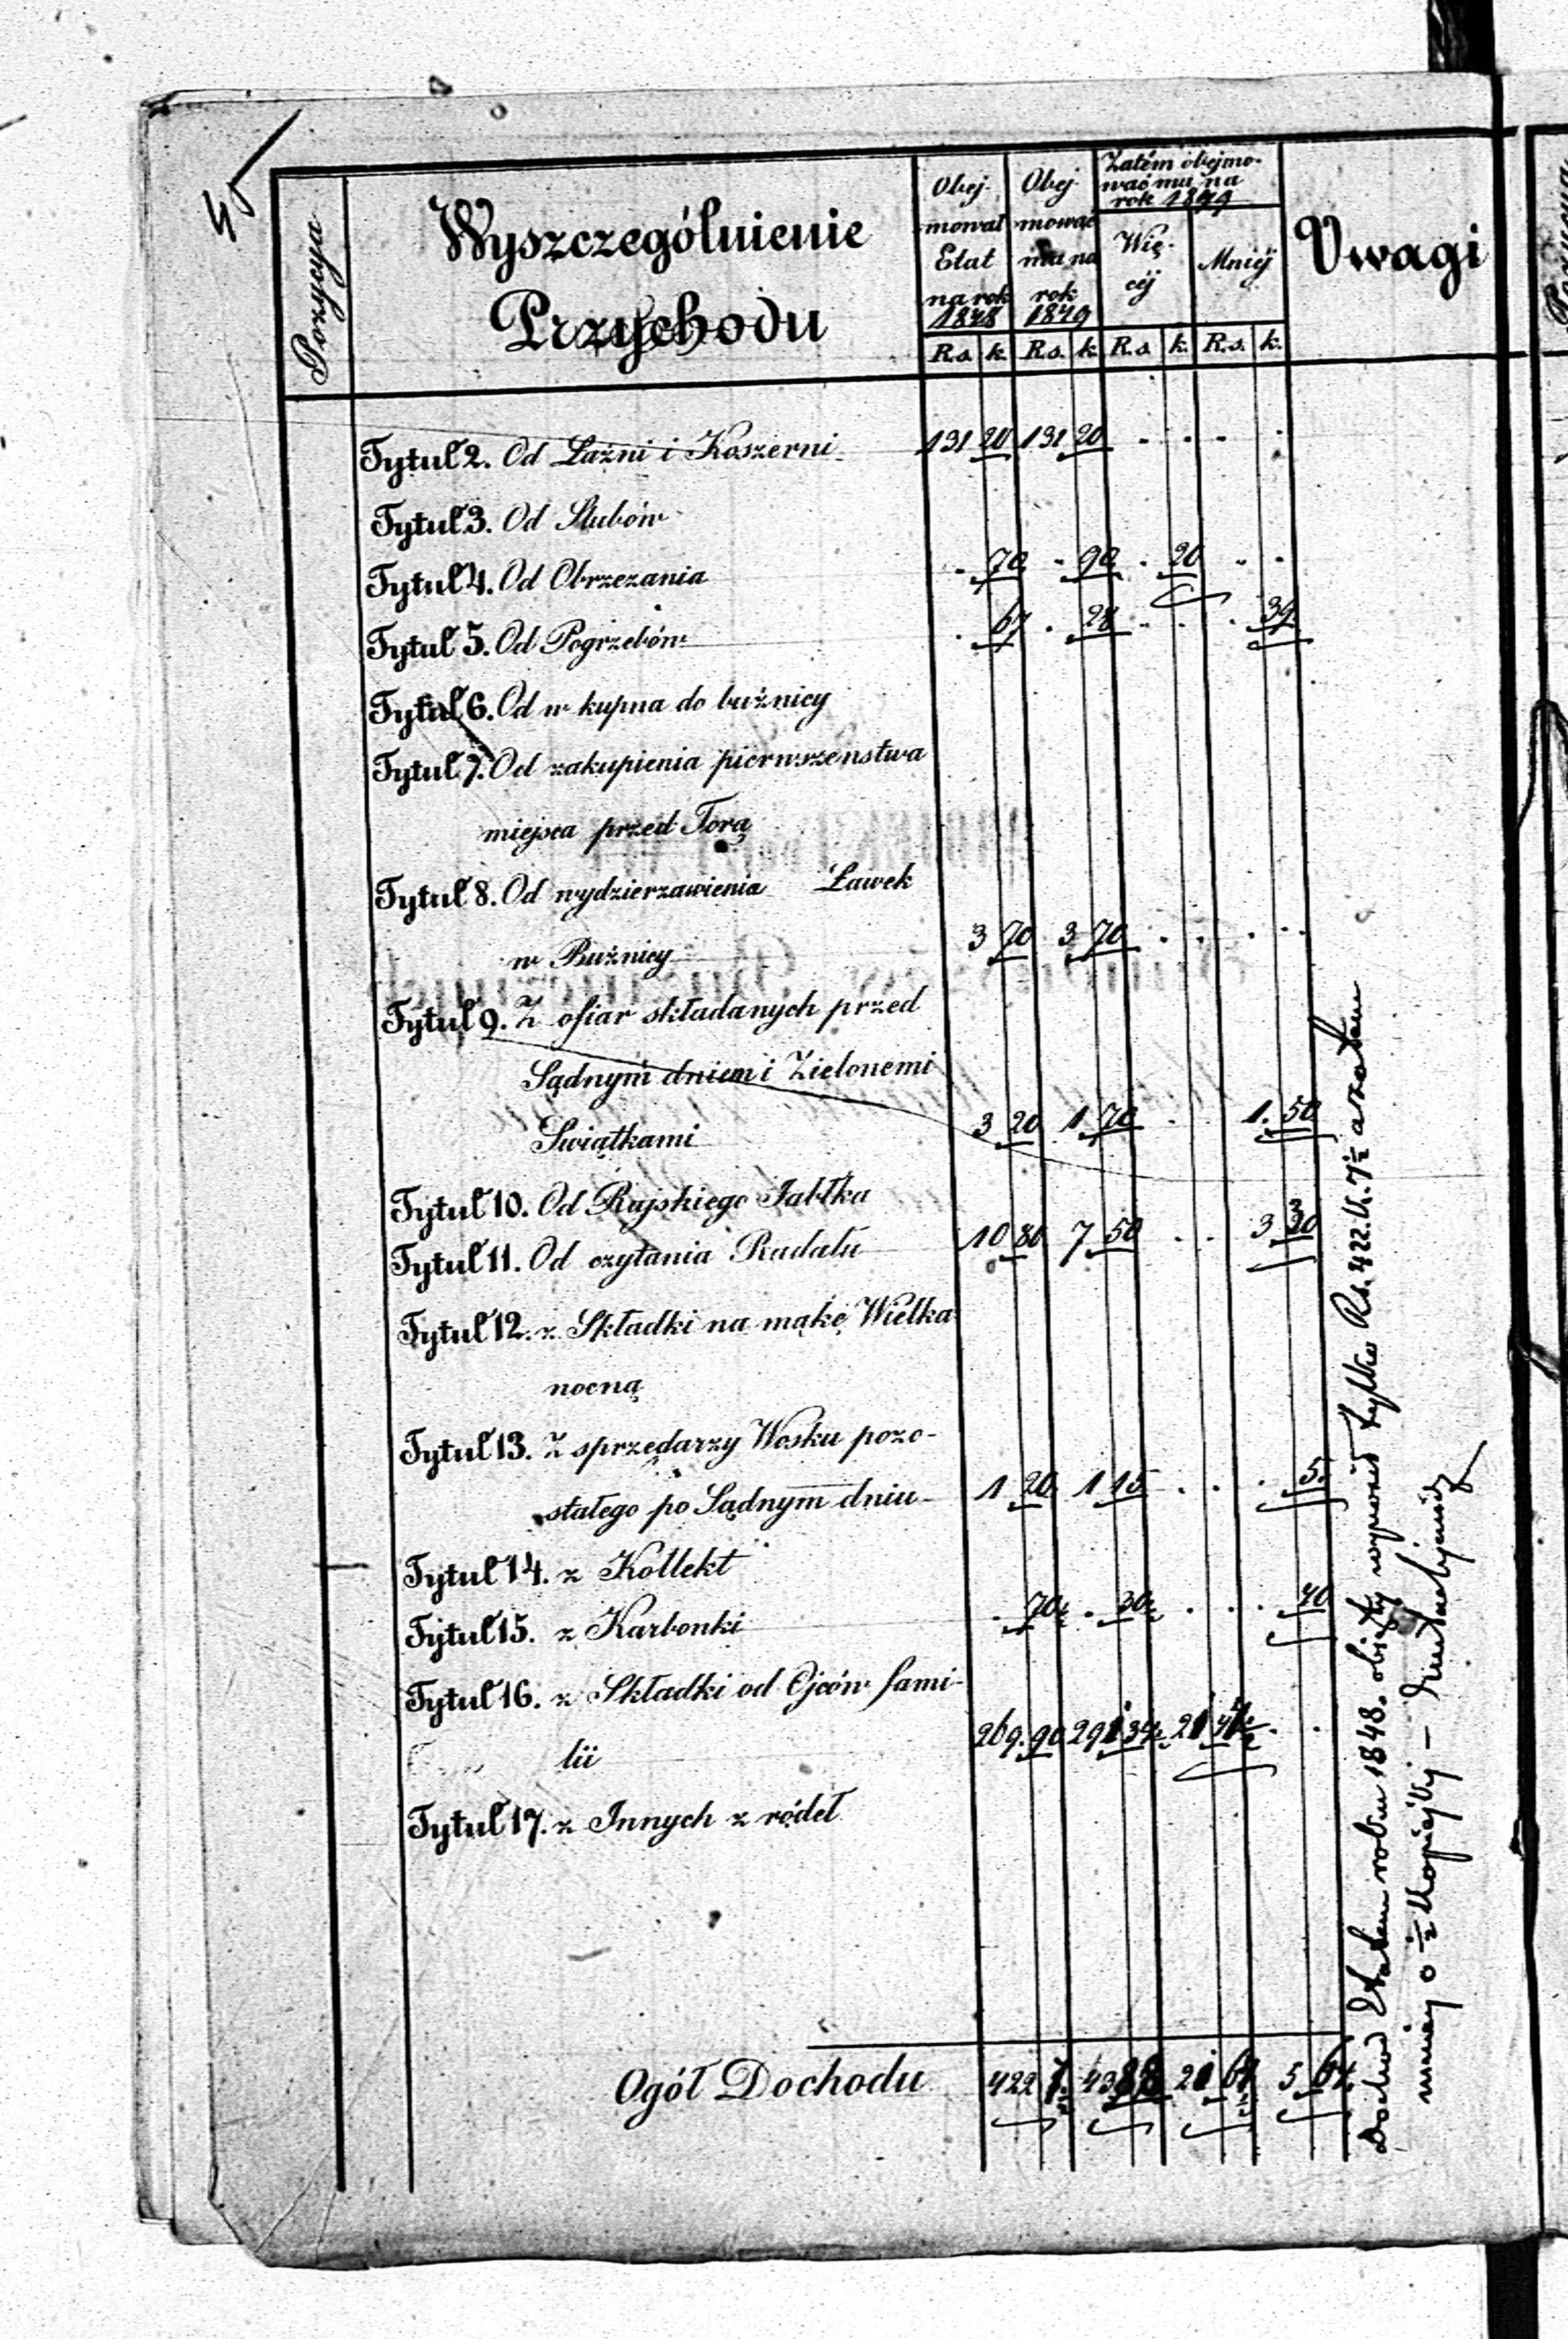 45
Pozycya
Wyszczególnienie
Przychodu
Obej-
mował
Etat
na rok
1848
Obej
mować
ma na
rok
1849
Zatém obejmo-
wać ma na
rok 1849
Wię-
céj
Mniéj
Uwagi
R.s. k. R.s. k. R.s. k. R.s. k.
Tytuł 2. Od Łaźni i Koszerni 131 20 131 20 . . . .
Tytuł 3. Od Slubów
Tytuł 4. Od Obrzezania . 70 . 90 . 20 . .
Tytuł 5. Od Pogrzebów . 67 . 28 . . . 39
Tytuł 6. Od w kupna do buźnicy
Tytuł 7. Od zakupienia pierwszenstwa
miejsca przed Torą
Tytuł 8. Od wydzierzawienia Ławek
w Buźnicy 3 70 3 70 . . . .
Tytuł 9. Z ofiar składanych przed
Sądnym dniem i Zielonemi
Swiątkami 3 20 1 70 . . 1. 50
Tytuł 10. Od Rajskiego Jabłka
Tytuł 11. Od czytania Rudału 10 80 7 50 . . 3 30
Tytuł 12. z Składki na mąkę Wielka
nocną
Tytuł 13. Z sprzedarzy Wosku pozo-
stałego po Sądnym dniu 1 20 1 15 . . . 5.
Tytuł 14. z Kollekt
Tytuł 15. z Karbonki . 70½ . 30½ . . . 40
Tytuł 16. z Składki od Ojców fami-
lii 269. 90 291 34½ 21 . .
Tytuł 17. z Innych z ródeł
Ogół Dochodu 422 7½ 438 21 64 5 64.
Dochod Etatem roku 1848. objęty wynosił tylko Rs. 422. k. 7½ a zatem
mniéj o ½ kopiejki –